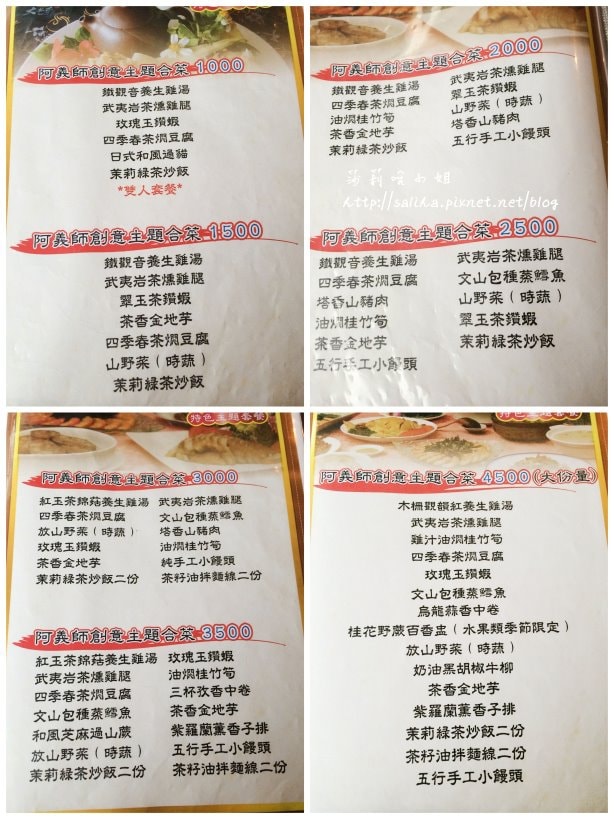 阿義師創意主題合菜 1000
鐵觀音養生雞湯
武夷岩茶燻雞腿
玫瑰玉鑽蝦
四季春茶燜豆腐
日式和風過貓
茉莉綠茶炒飯
*雙人套餐*
阿義師創意主題合菜 1500
鐵觀音養生雞湯
武夷岩茶燻雞腿
翠玉茶鑽蝦
茶香金地芋
四季春茶燜豆腐
山野菜(時蔬)
茉莉綠茶炒飯
阿義師創意主題合菜 2000
鐵觀音養生雞湯
四季春茶燜豆腐
油燜桂竹筍
茶香金地芋
茉莉綠茶炒飯
武夷岩茶燻雞腿
翠玉茶鑽蝦
山野菜(時蔬)
塔香山豬肉
五行手工小饅頭
莎莉哈小姐
http://saliha.pixnet.net/blog
阿義師創意主題合菜 2500
鐵觀音養生雞湯
四季春茶燜豆腐
塔香山豬肉
油燜桂竹筍
茶香金地芋
五行手工小饅頭
武夷岩茶燻雞腿
文山包種蒸鱈魚
山野菜(時蔬)
翠玉茶鑽蝦
茉莉綠茶炒飯
特色主題套餐
阿義師創意主題合菜 3000
紅玉茶錦菇養生雞湯
四季春茶燜豆腐
放山野菜(時蔬)
玫瑰玉鑽蝦
茶香金地芋
茉莉綠茶炒飯二份
武夷岩茶燻雞腿
文山包種蒸鱈魚
塔香山豬肉
油燜桂竹筍
純手工小饅頭
茶籽油拌麵線二份
阿義師創意主題合菜 3500
紅玉茶錦菇養生雞湯
武夷岩茶燻雞腿
四季春茶燜豆腐
文山包種蒸鱈魚
和風芝麻過山蕨
放山野菜(時蔬)
茉莉綠茶炒飯二份
玫瑰玉鑽蝦
油燜桂竹筍
三杯孜香中卷
茶香金地芋
紫羅蘭薰香子排
五行手工小饅頭
茶籽油拌麵線二份
特色主題套餐
阿義師創意主題合菜 4500(大份量)
木柵觀韻紅養生雞湯
武夷岩茶燻雞腿
雞汁油燜桂竹筍
四季春茶燜豆腐
玫瑰玉鑽蝦
文山包種蒸鱈魚
烏龍蒜香中卷
桂花野蕨百香盅(水果類季節限定)
放山野菜(時蔬)
奶油黑胡椒牛柳
茶香金地芋
紫羅蘭薰香子排
茉莉綠茶炒飯二份
茶籽油拌麵線二份
五行手工小饅頭